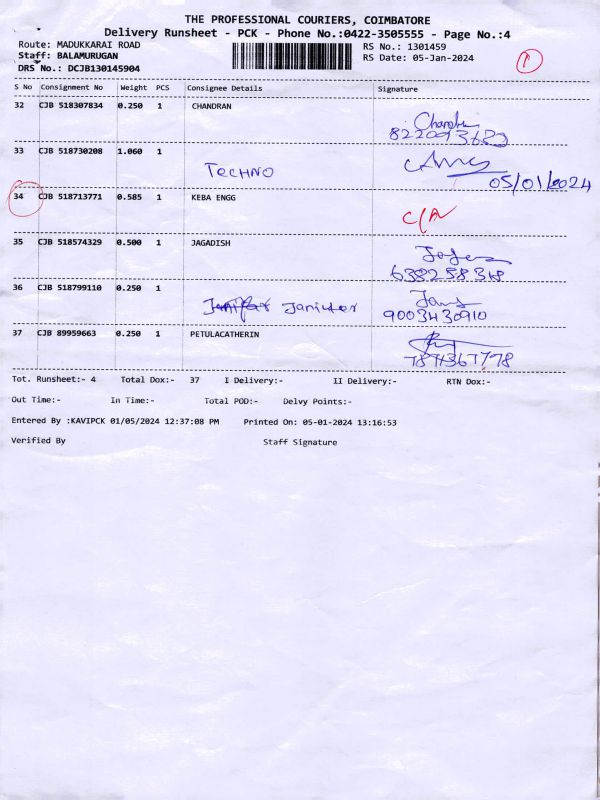 THE PROFESSIONAL COURIERS, COIMBATORE
Delivery Runsheet - PCK - Phone No.:0422-3505555 - Page No.:4
Route: MADUKKARAI ROAD RS No.: 1301459
Staff: BALAMURUGAN RS Date: 05-Jan-2024
DRS No.: DCJB130145904
1
S No Consignment No Weight PCS Consignee Details Signature
32 CJB 518307834 0.250 1 CHANDRAN
33 CJB 518730208 1.060 1
TECHNO
05/01/2024
34 CJB 518713771 0.585 1 KEBA ENGG
C/A
35 CJB 518574329 0.500 1 JAGADISH
36 CJB 518799110 0.250 1
9003430910
37 CJB 89959663 0.250 1 PETULACATHERIN
Tot. Runsheet:- 4 Total Dox:- 37 I Delivery:- II Delivery:- RTN Dox:-
Out Time:- In Time:- Total POD:- Delvy Points:-
Entered By :KAVIPCK 01/05/2024 12:37:08 PM Printed On: 05-01-2024 13:16:53
Verified By Staff Signature